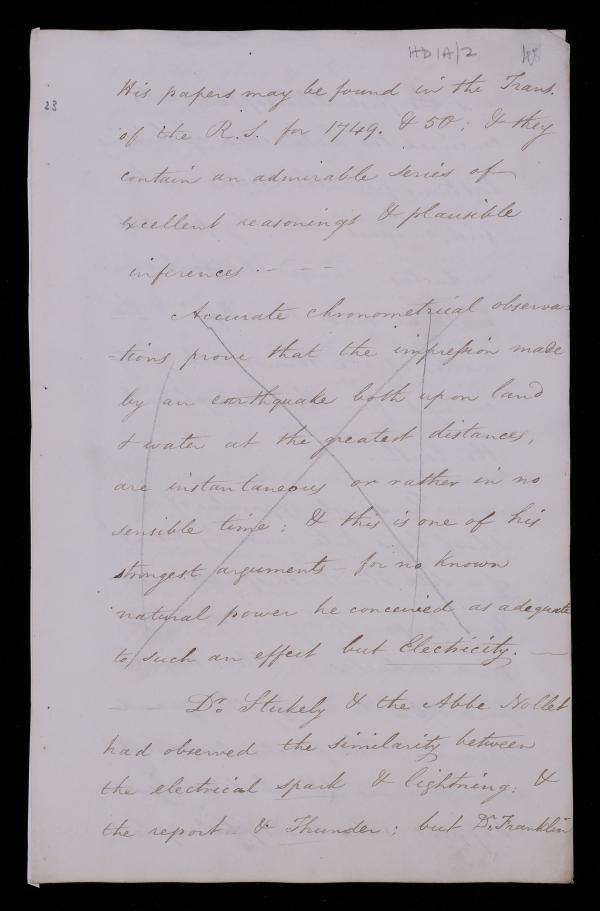 HD 1A/2
23
His papers may be found in the Trans.
of the R.S. for 1749. & 50; & they
contain an admirable series of
excellent reasonings & plausible
inferences. - - -
Accurate chronometrical observa=
=tions prove that the impression made
by an earthquake both upon land
& water at the greatest distances,
are instantaneous or rather in no
sensible time; & this is one of his
strongest arguments - for no known
natural power he conceived as adequate
to such an effect but Electricity. —
Dr. Stukely & the Abbe Nollet
had observed the similarity between
the electrical spark & lightning; &
the report & Thunder; but Dr. Franklin